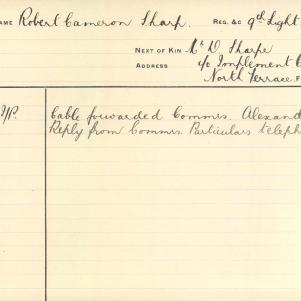 NAME Robert Cameron Sharp. REG. &C 9th Light
NEXT OF KIN Mr D. Sharpe
ADDRESS c/o Implement
North Terrace
Cable forwarded Commrs. Alexand
Reply from Commrs. Particulars teleph